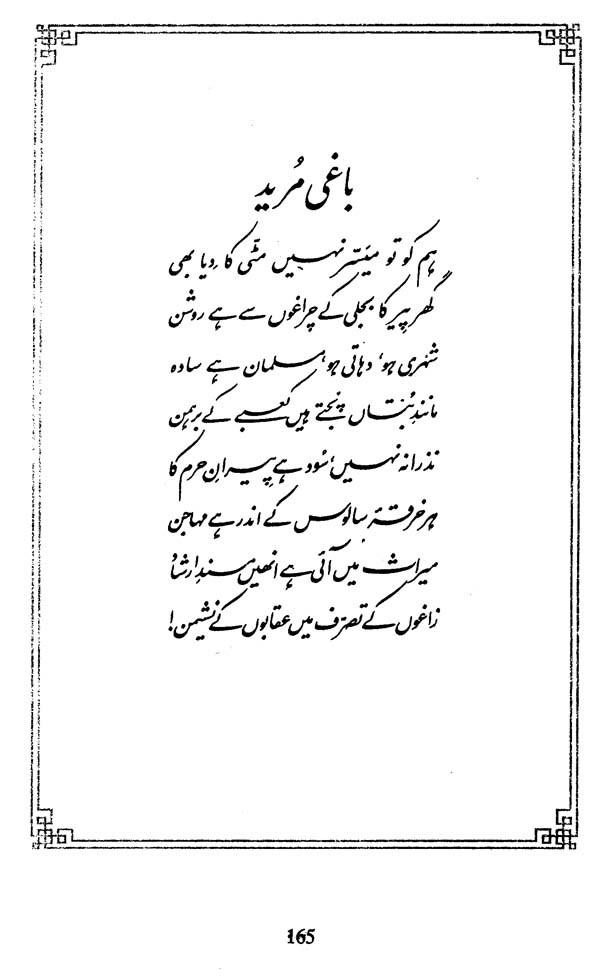 باغی مُرید
ہم کو تو میَسّر نہیں مٹّی کا دِیا بھی
گھر پِیر کا بجلی کے چراغوں سے ہے روشن
شہری ہو، دہاتی ہو، مسلمان ہے سادہ
مانندِ بُتاں پُجتے ہیں کعبے کے برہمن
نذرانہ نہیں، سُود ہے پِیرانِ حرم کا
ہر خرقۂ سالوس کے اندر ہے مہاجن
میراث میں آئی ہے انھیں مسندِ ارشاد
زاغوں کے تصرّف میں عقابوں کے نشیمن!
165